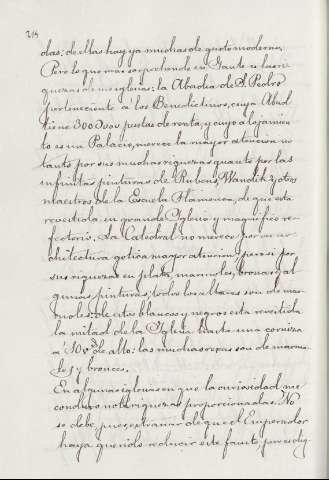 214
das: de ellas hay ya muchas de gusto moderno.
Pero lo que mas sorprehende en Gante es la ri-
queza de sus iglesias: la Abadia de S. Pedro
perteneciente a los Benedictinos, cuyo Abad
tiene 300000 pesetas de renta, y cuyo alojamien-
to es un Palacio, merece la mayor atencion no
tanto por sus muchas riquezas quanto por las
infinitas pinturas de Rubens, Wandik, y otros
maestros de la Escuela Flamenca, de que está
revestida su grande Iglesia y magnifico re-
fectorio. La Catedral no merece por su ar-
chitectura gotica mayor atencion, pero si por
sus riquezas en plata, marmoles, bronces y al-
gunas pinturas; todos los altares son de mar-
moles: de estos blancos y negros esta revestida
la mitad de la Iglesia hasta una corniza
a 10 de alto: las muchas rexas son de marmo-
les y bronces.
En algunas iglesias en que la curiosidad me
conduxo noté riquezas proporcionadas. No
se debe pues extrañar de que el Emperador
haya querido reducir este fausto prodig